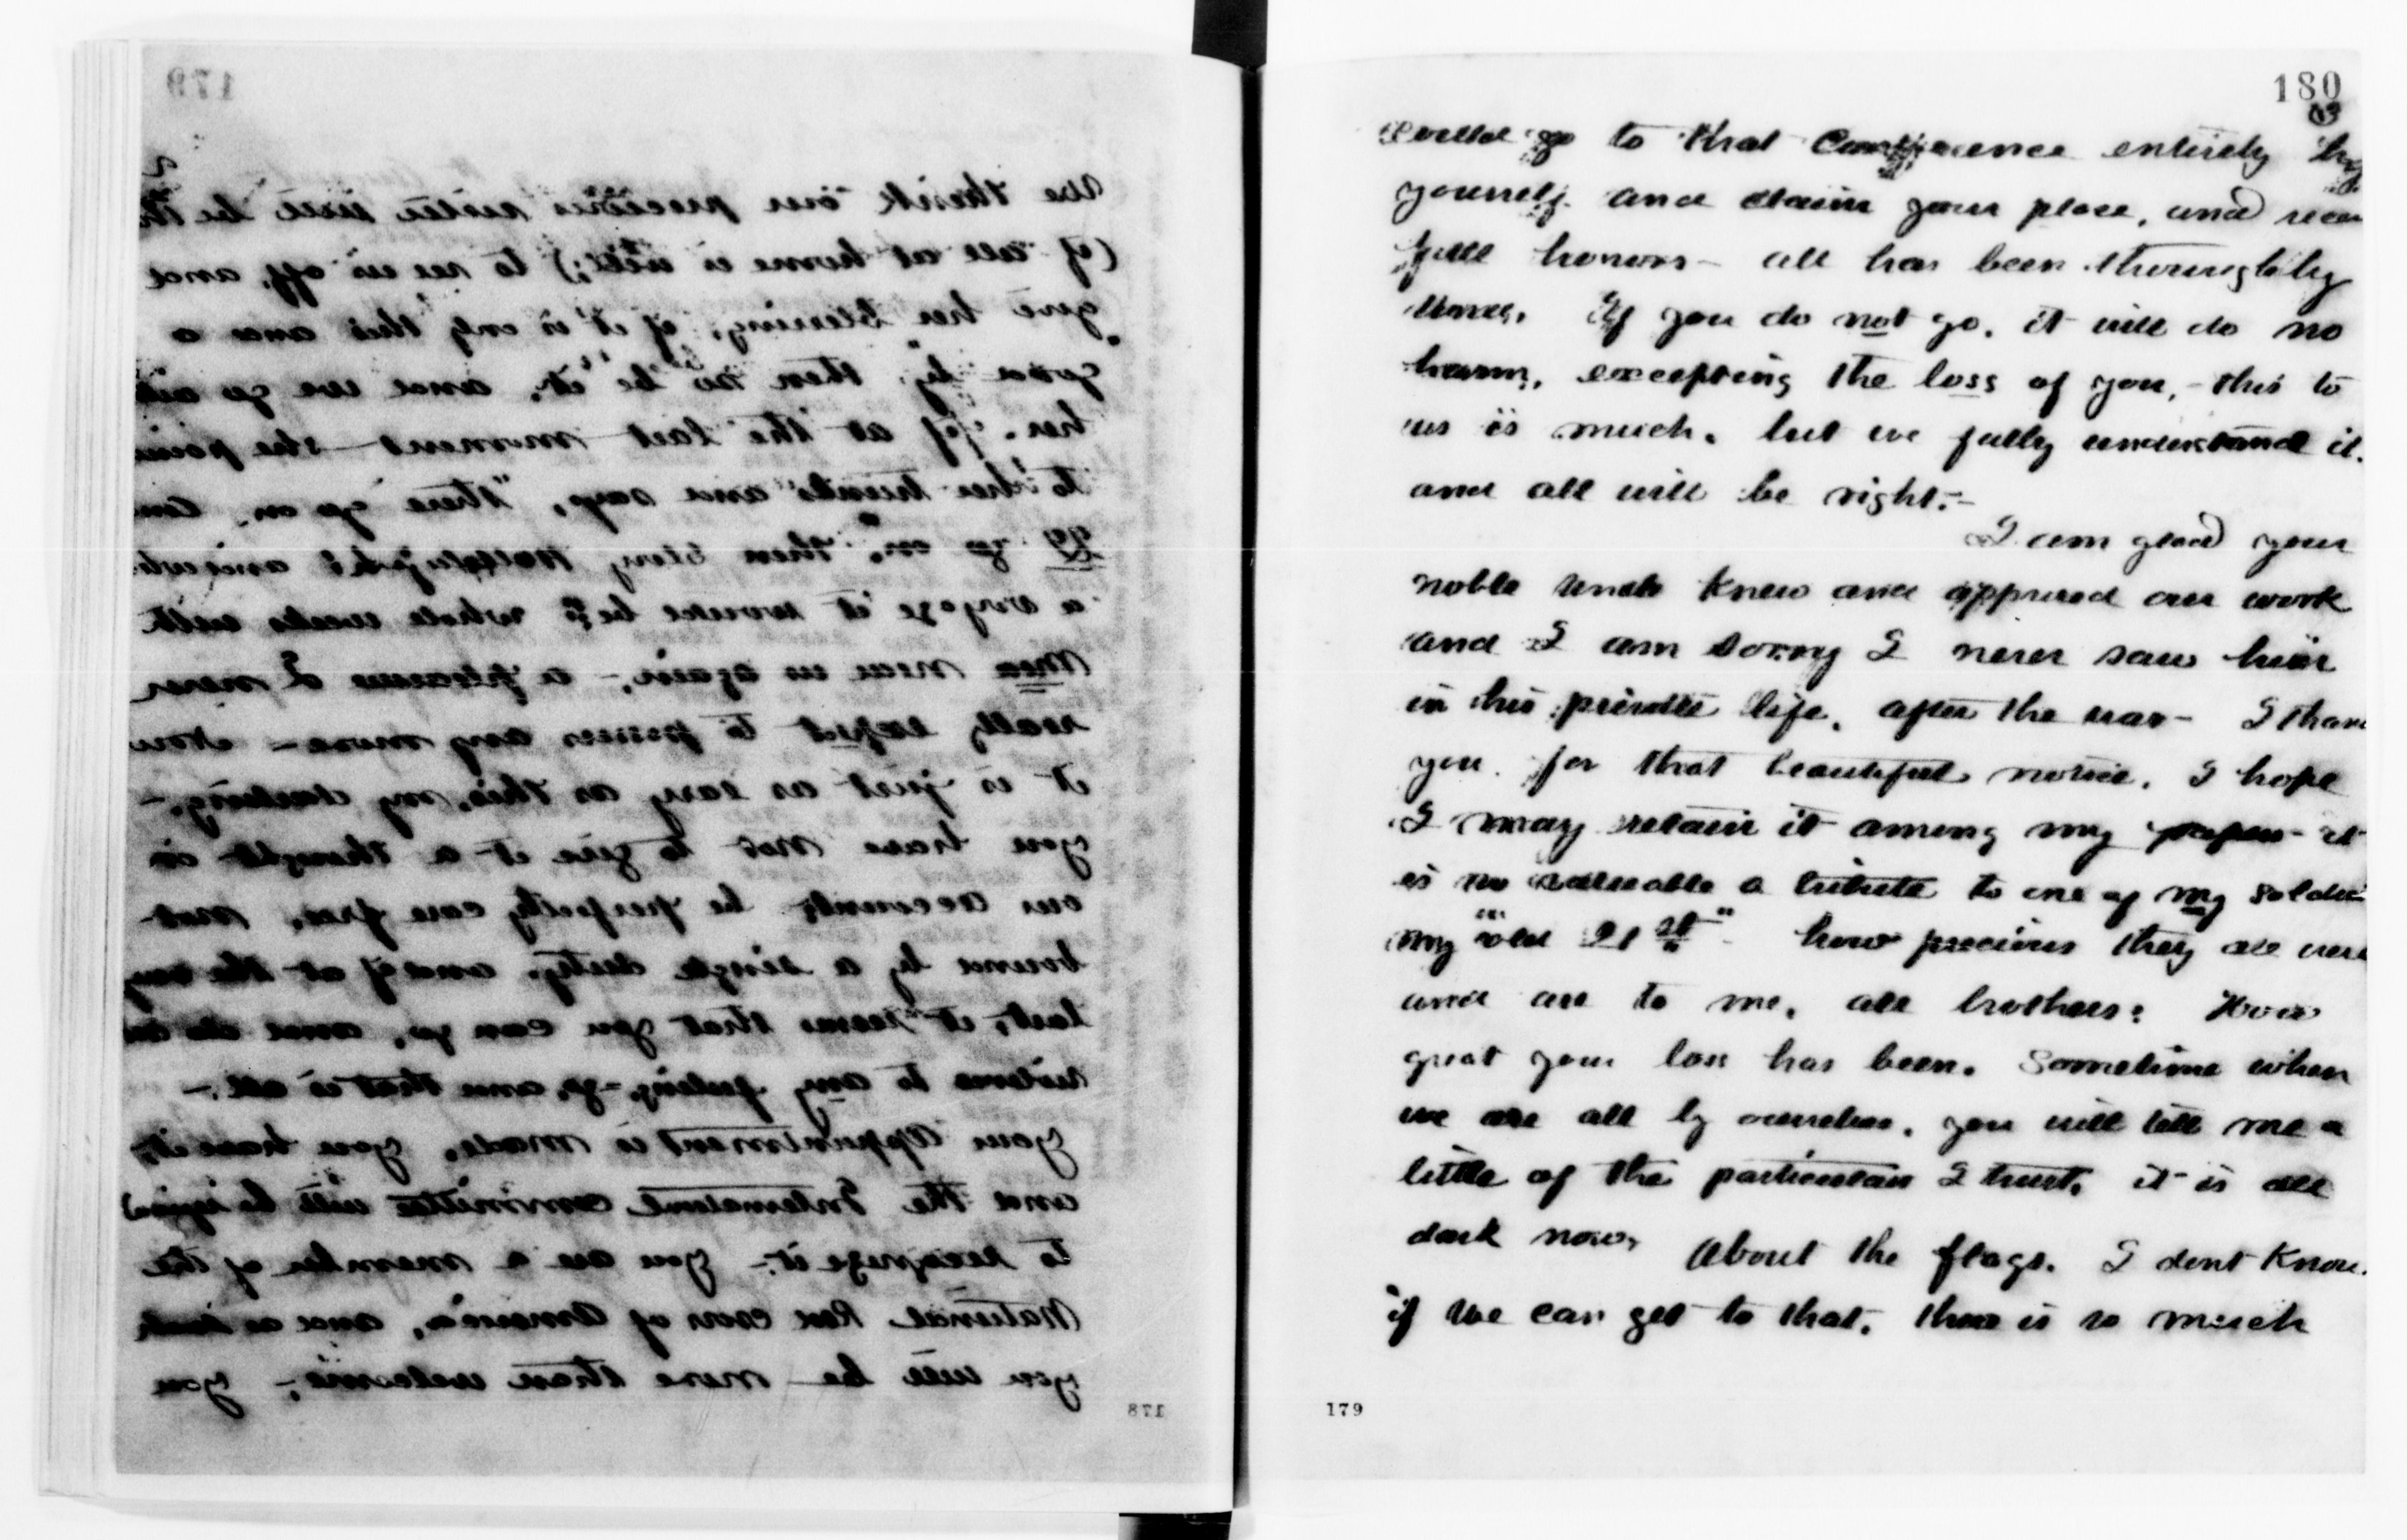 179
We think our precious sister will be
(if all at home is well;) to see us off, and
give her "blessing", if it is only this and a
good by, then so be it, and we go with
her. If at the last moment she
to her trunks and says, "there go on,
go on". Then Glory Hallelujah!
a voyage it would be; whole weeks with
near us again, - a pleasure I never
really expect to possess any more - Now
it is just as easy as this, my darling, -
you have not to give it a thought on
our account, be perfectly care free, not
bound by a single duty, and if at the very
last, it seems that you can go, and do
violence to any feeling, - go, and that is all. -
your appointment is made, you have it,
and the International Committee will be
to recognize it. - you are a member of the
National Red Cross of America, and as such
you will be more than welcome, - you
178
180
could go to that Conference entirely by
yourself and claim your place, and
full honors - all has been thoroughly
done. If you do not go, it will do no
harm, excepting the loss of you, - this to
us is much, but we fully understand it.
and all will be right. -
I am glad your
noble uncle knew and approved our work
and I am sorry I never saw him
in his private life, after the war - I thank
you for that beautiful notice. I hope
I may retain it among my papers - it
is so valuable a tribute to one of my soldier
my "old 21st" - how precious they all were
and are to me, all brothers: How
great your loss has been. Sometime when
we are all by ourselves, you will tell me a
little of the particulars I trust, it is all
dark now. About the flags. I dont know.
if we can get to that, there is so much
179